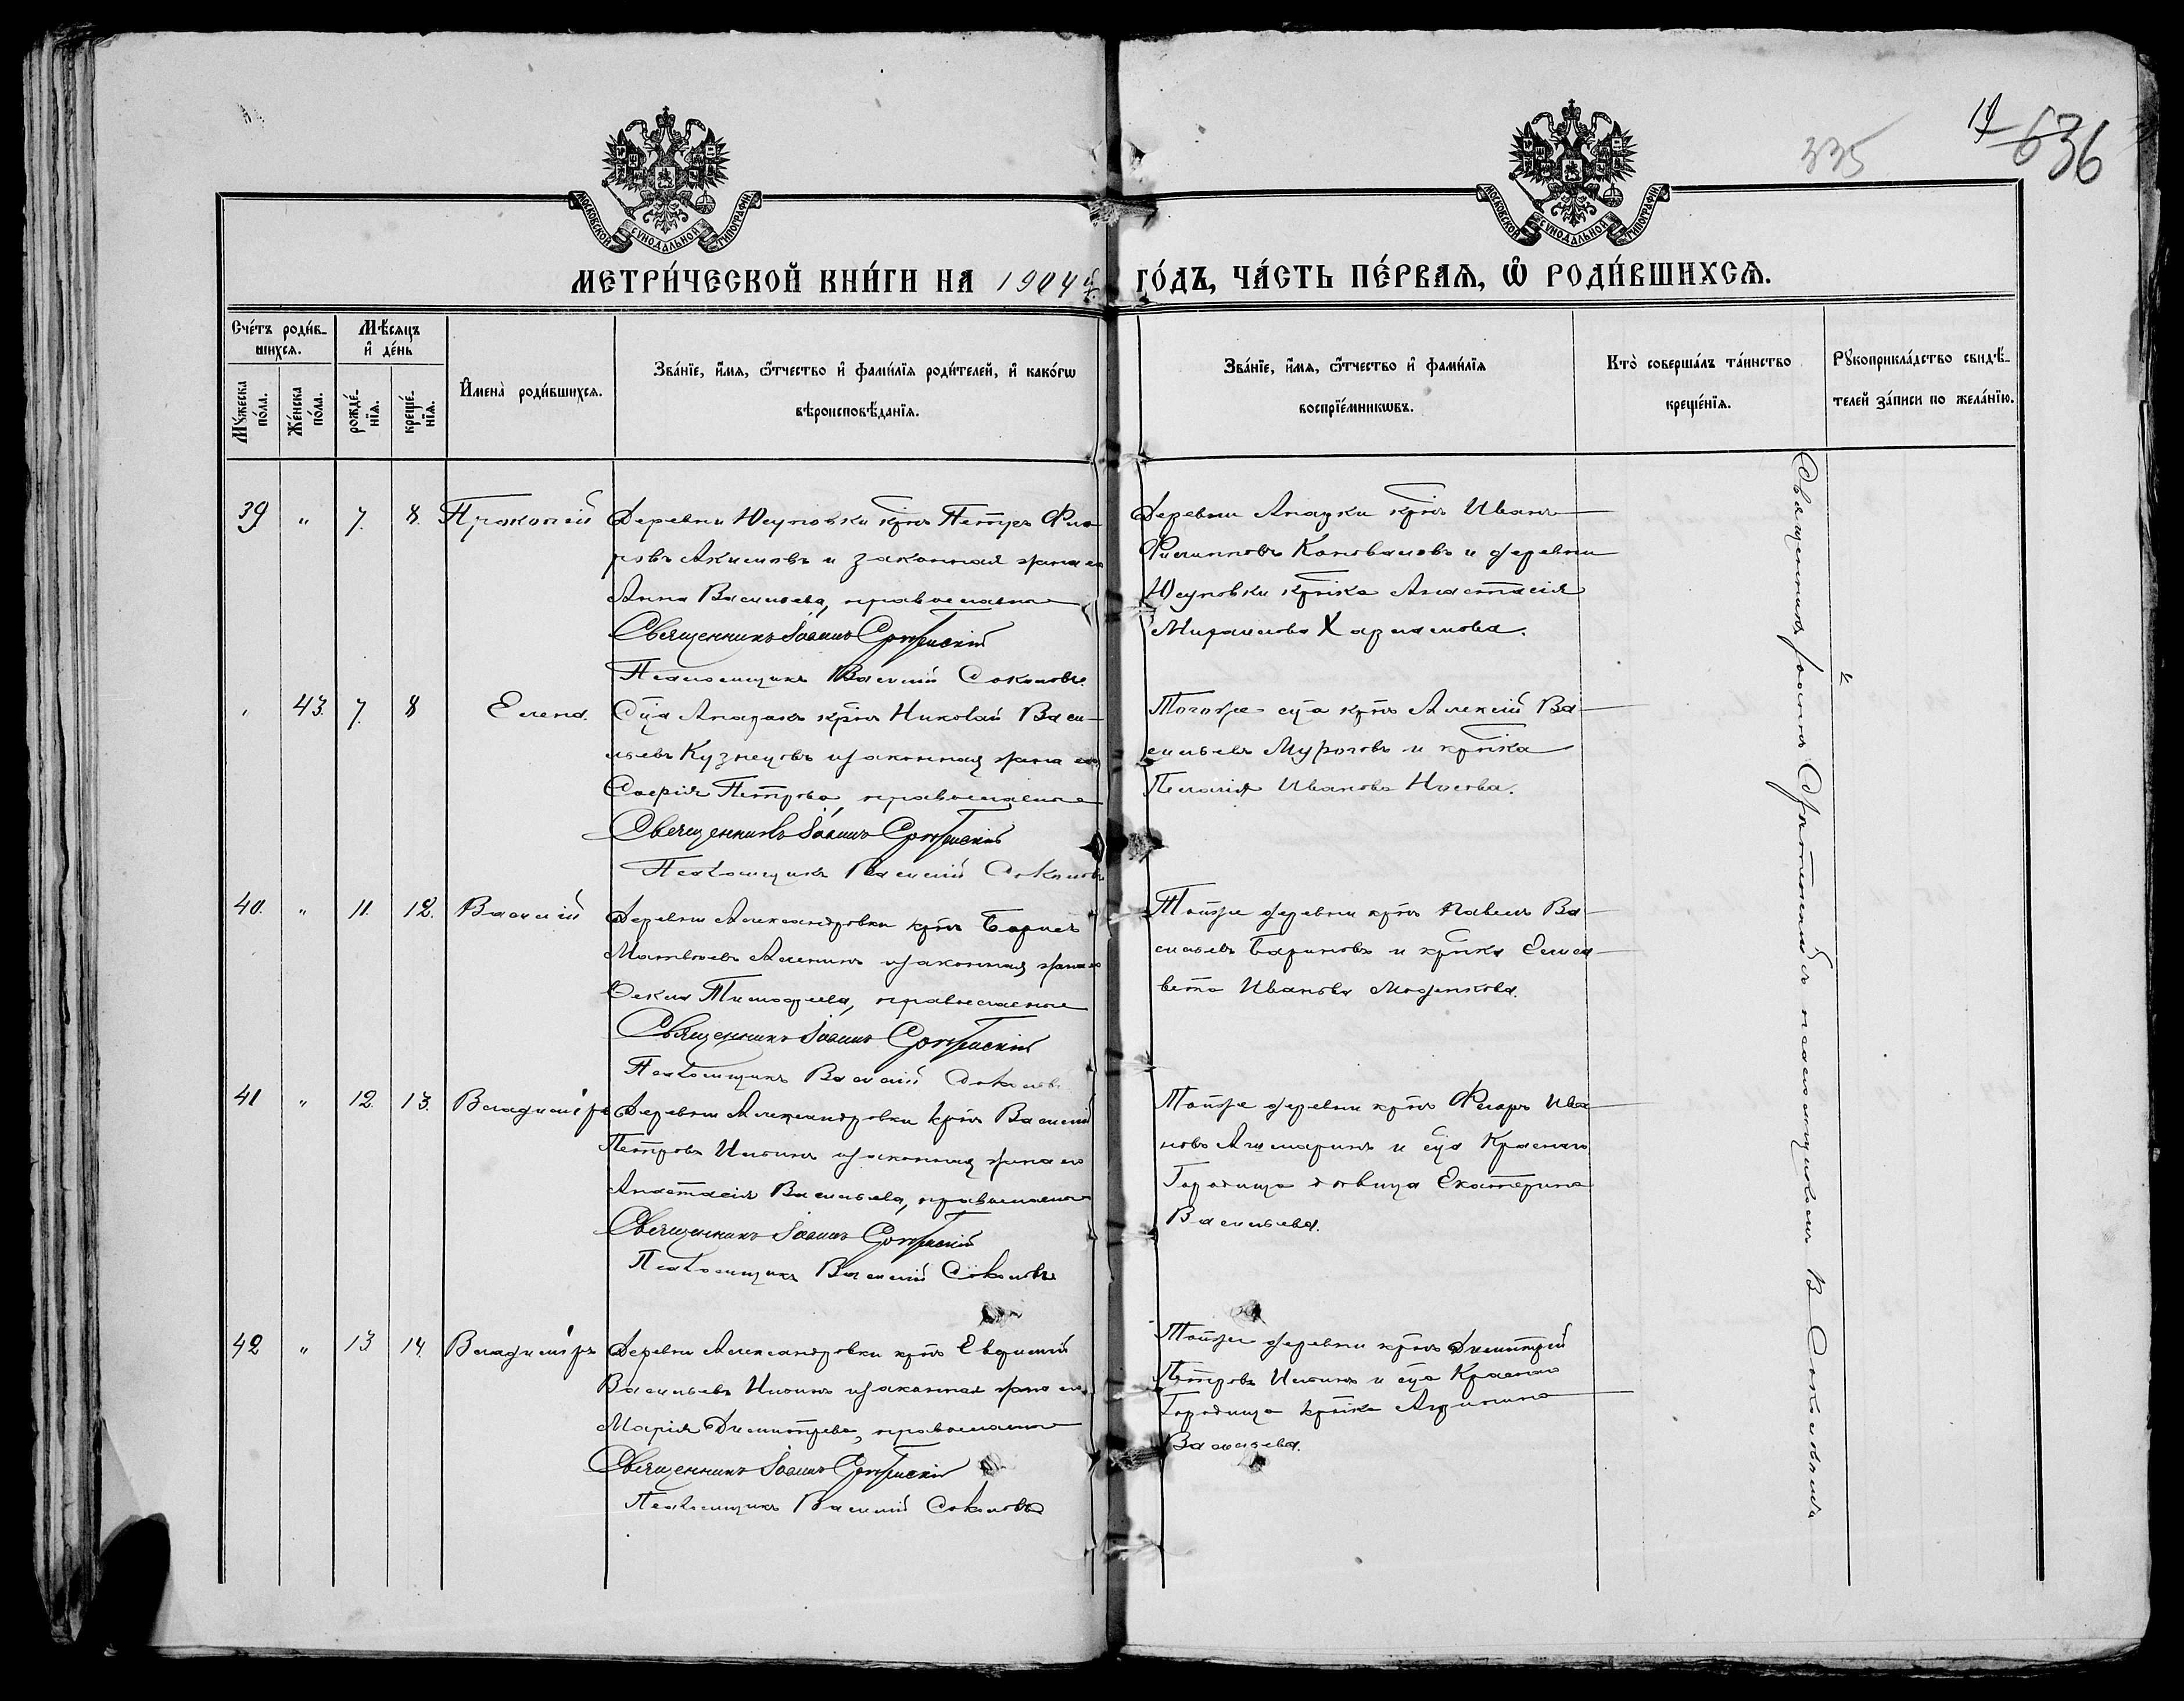 335
636
МОСКОВСКОЙ СУНОДАЛЬНОЙ ТИПОГРАФІИ
МОСКОВСКОЙ СУНОДАЛЬНОЙ ТИПОГРАФІИ
МЕТРИ́ЧЕСКОЙ КНИ́ГИ НА 1904 й ГО́ДЪ, ЧА́СТЬ ПЕ́РВАѦ, Ѡ҆ РОДИ́ВШИХСѦ.
Сче́тъ роди́в-
шихсѧ.
Мꙋ́жеска по́ла.
Же́нска по́ла.
Мѣ́сѧцъ
и҆ де́нь
рожде́-
нїѧ.
креще́-
нїѧ.
И҆мена̀ роди́вшихсѧ.
Зва́нїе, и҆́мѧ, ѻ҆́тчество и҆ фами́лїѧ роди́телей, и҆ како́гѡ
вѣроисповѣ́данїѧ.
Зва́нїе, и҆́мѧ, ѻ҆́тчество и҆ фами́лїѧ
воспрїе́мникѡвъ.
Кто̀ соверша́лъ та́инство
креще́нїѧ.
Рꙋкоприкла́дство свидѣ́-
телей за́писи по жела́нїю.
39 " 7. 8. Прокопій
Деревни Юсуповки крнъ Петръ Фло-
ровъ Акимовъ и законная жена его
Анна Васильева, православные
Священникъ Іоаннъ Сретенскій
Псаломщикъ Василій Соколовъ.
Деревни крнъ Иванъ
Филипповъ Коноваловъ и деревни
Юсуповки крнка Анастасія
Харламова.
43. 7. 8 Елена.
Села крнъ Николай Васи-
льевъ Кузнецовъ и законная жена его
Софія Петрова, православные
Священникъ Іоаннъ Сретенскій
Псаломщикъ Василій Соколовъ
Того же села крнъ Алексій Ва-
сильевъ и крнка
Пелагія Иванова Носова.
40. " 11. 12. Василій
Деревни Александровки крнъ Борисъ
Матвѣевъ Аленинъ и законная жена его
Ѳекла Тимофеева, православные
Священникъ Іоаннъ Сретенскій
Псаломщикъ Василій Соколовъ
Той же деревни крнъ Павелъ Ва-
сильевъ Бариновъ и крнка Елиса-
вета Иванова
41 " 12. 13. Владиміръ
Деревни Александровки крнъ Василій
Петровъ Ильинъ и законная жена его
Анастасія Васильева, православные
Священникъ Іоаннъ Сретенскій
Псаломщикъ Василій Соколовъ
Той же деревни крнъ Флоръ Ива-
новъ и села Краснаго
Городища дѣвица Екатерина
Васильева.
42 " 13 14. Владиміръ
Деревни Александровки крнъ Евфимій
Васильевъ Ильинъ и законная жена его
Марія Димитріева, православные
Священникъ Іоаннъ Сретенскій
Псаломщикъ Василій Соколовъ
Той же деревни крнъ Димитрій
Петровъ Ильинъ и села Краснаго
Городища крнка Агрипина
Васильева.
Священникъ Іоаннъ Срѣтенскій съ псаломщикомъ В. Соколовымъ